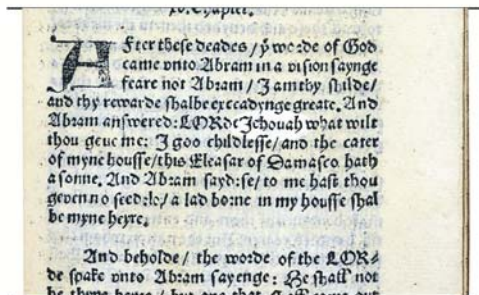 xv. Chapter.
After these deades / yͤ worde of God
came vnto Abram in a vision saynge
feare not Abram / I am thy shilde /
and thy rewarde shalbe exceadynge greate. And
Abram answered: LORde Jehouah what wilt
thou geue me: I goo childlesse / and the cater
of myne housse / this Eleasar of Damasco hath
a sonne. And Abram sayd: se / to me hast thou
geven no seed: lo / a lad borne in my housse shal
be myne heyre.
And beholde / the worde of the LOR-
de spake vnto Abram sayenge: He shall not
be thyne heyre / but one that